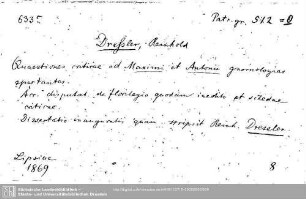 6335 Patr. gr. 512 = 0
Dressler, Reinhold
Quaestiones criticae ad Maximi et Antonii gnomologias
spectantes.
Acc. disputat. de florilegio quodam inedito et schedae
criticae.
Dissertatio inauguralis quam scripsit Reinh. Dressler.
Lipsiae
1869 8